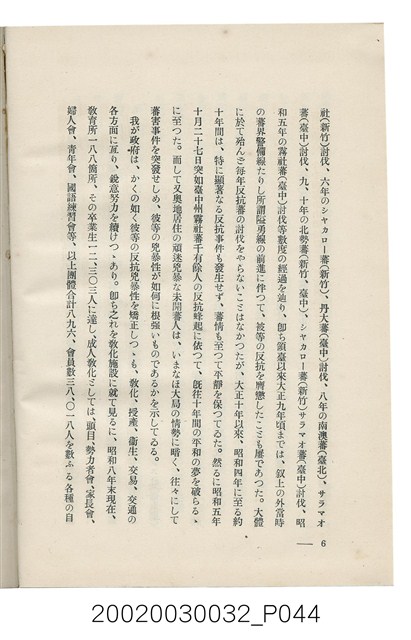 社(新竹)討伐、六年のシヤカロー蕃(新竹)、丹大蕃(臺中)討伐、八年の南澳蕃(臺北)、サラマオ
蕃(臺中)討伐、九、十年の北勢蕃(新竹、臺中)、シヤカロー蕃(新竹)サラマオ蕃(臺中)討伐、昭
和五年の霧社蕃(臺中)討伐等數度の經過を辿り、卽ち領臺以來大正九年頃までは、叙上の外當時
の蕃界警備線たりし所謂隘勇線の前進に伴つて、彼等の反抗を膺懲したことも屢であつた。大體
に於て殆んど每年反抗蕃の討伐をやらないことはなかつたが、大正十年以來、昭和四年に至る約
十年間は、特に顯著なる反抗事件も發生せず、蕃情も至つて平靜を保つてゐた。然るに昭和五年
十月二十七日突如臺中州霧社蕃千有餘人の反抗蜂起に依つて、旣往十年間の平和の夢を破らるゝ
に至つた。而して又奧地居住の頑迷兇暴な未開蕃人は、いまなほ大局の情勢に暗く、往々にして
蕃害事件を突發せしめ、彼等の兇暴性が如何に根强いものであるかを示してゐる。
我が政府は、かくの如く彼等の反抗兇暴性を矯正しつゝも、敎化、授產、衞生、交易、交通の
各方面に亙り、銳意努力を續けつゝあり。卽ち之れを敎化施設に就て見るに、昭和八年末現在、
敎育所一八八箇所、その卒業生一二、三〇三人に達し、成人敎化としては、頭目、勢力者會、家長會、
婦人會、靑年會、國語練習會等、以上團體合計八九六、會員數三八、〇一八人を數ふる各種の自
6
20020030032_P044